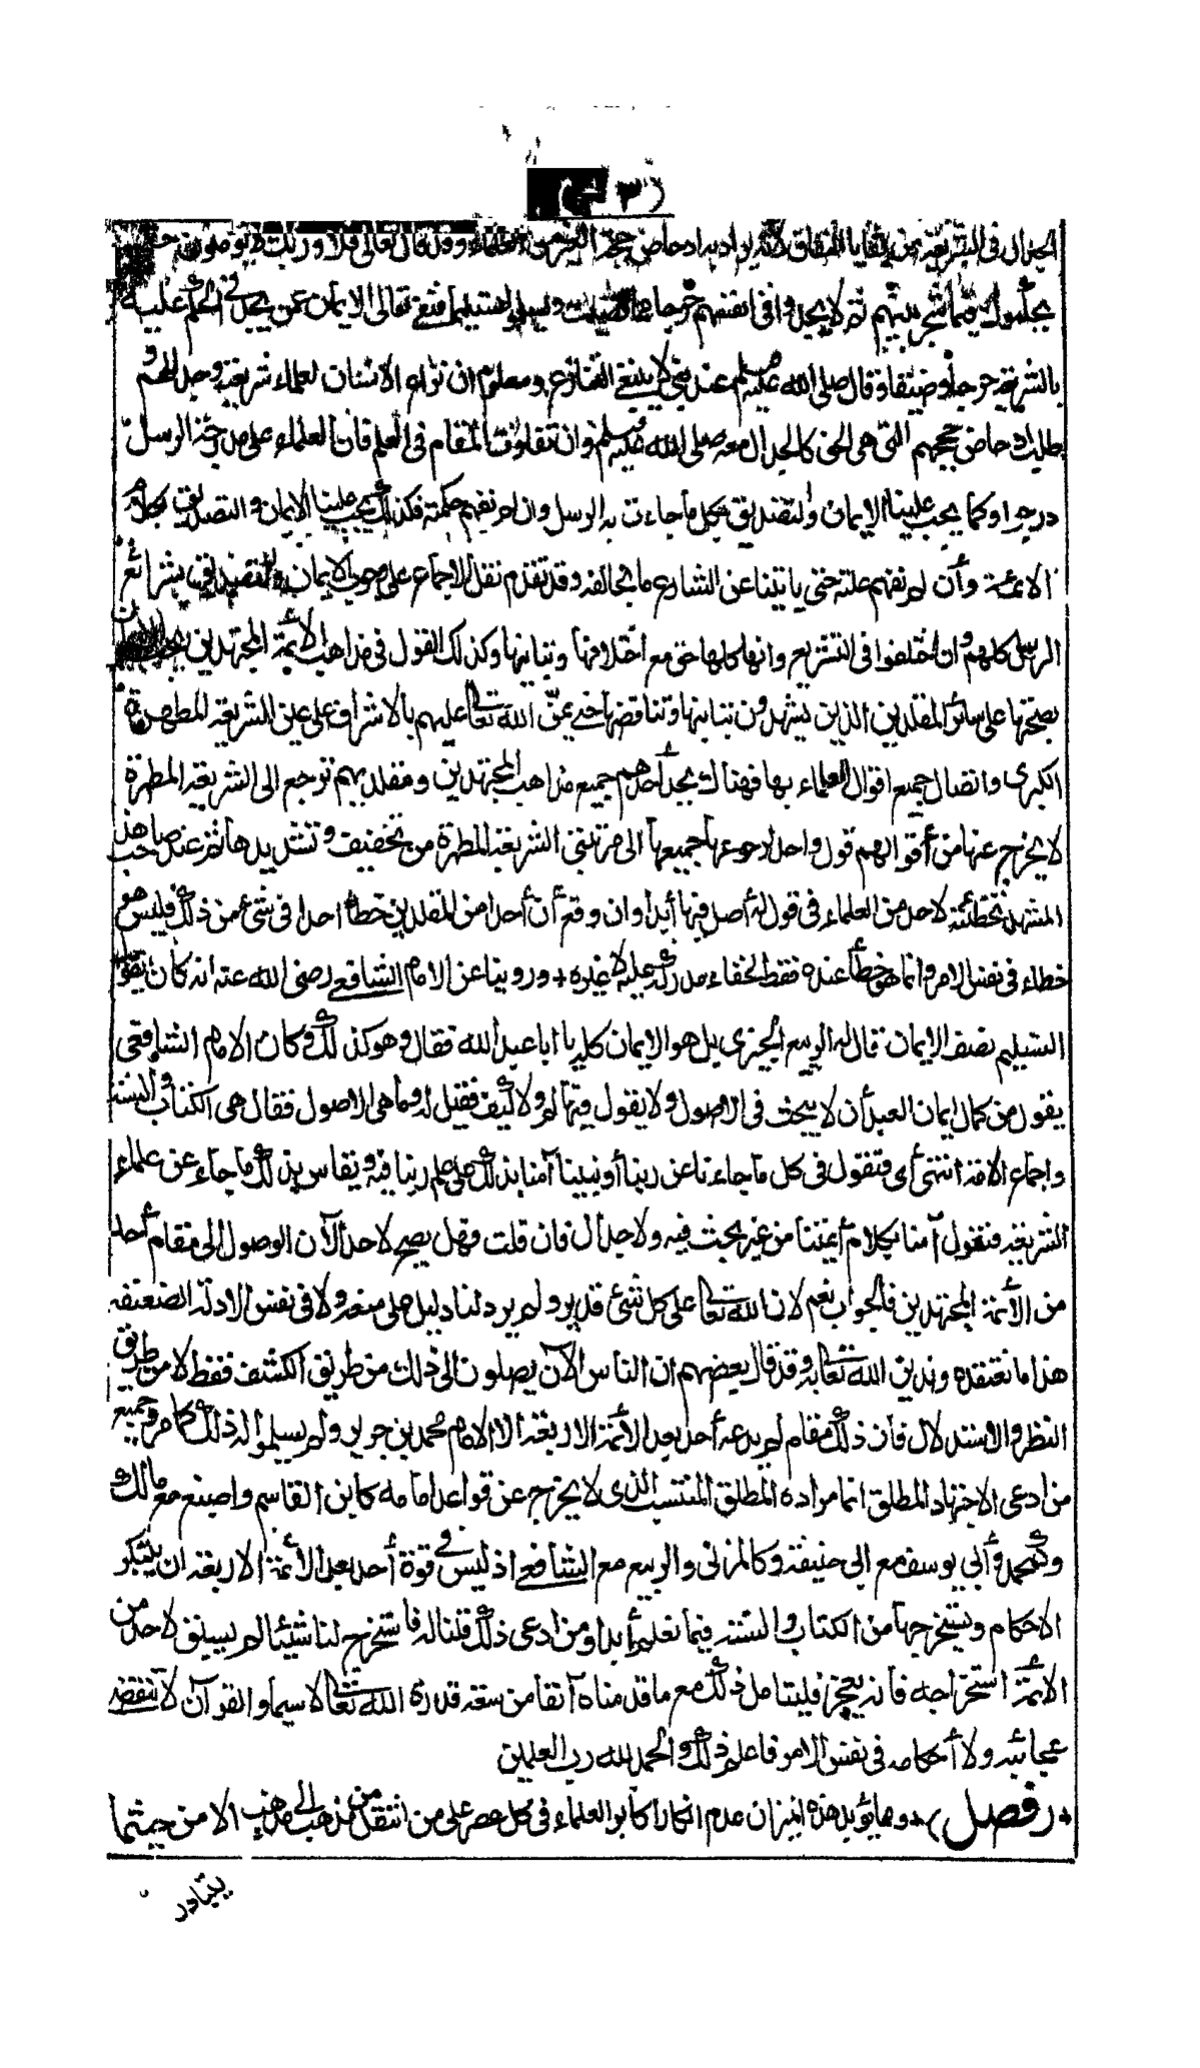 الجدال في الشريعة من بقايا النفاق لانه يراد به ادحاض حجة الغير من العلماء وقد قال تعالى فلا وربك لا يؤمنون حتى
يحكموك فيما شجر بينهم ثم لا يجدوا في انفسهم حرجا مما قضيت ويسلموا تسليما فنفى تعالى الايمان عمن يجد في الحكم عليه
بالشريعة حرجا وضيقا وقال صلى الله عليه وسلم عند نبي لا ينبغي التنازع ومعلوم ان نزاع الانسان لعلماء شريعته وجدالهم و
طلب ادحاض حججهم التي هي الحق كالجدال معه صلى الله عليه وسلم وان تفاوت المقام في العلم فان العلماء على مدرجة الرسل
درجوا وكما يجب علينا الايمان والتصديق بكل ما جاءت به الرسل وان لم نفهم حكمته فكذلك يجب علينا الايمان والتصديق بكلام
الائمة وأن لم نفهم علته حتى ياتينا عن الشارع ما يخالفه وقد تقدم نقل الاجماع على وجوب الايمان والتصديق بشرائع
الرسل كلهم وان اختلفوا في التشريع وانها كلها حق مع اختلافها وتباينها وكذلك القول في مذاهب الائمة المجتهدين يجب الايمان
بصحتها على سائر المقلدين الذين يشهدون تباينها وتناقضها حتى يمنّ الله تعالى عليهم بالاشراف على عين الشريعة المطهرة
الكبرى واتصال جميع اقوال العلماء بها فهناك يجد أحدهم جميع مذاهب المجتهدين ومقلديهم ترجع الى الشريعة المطهرة
لا يخرج عنها من أقوالهم قول واحد لرجوعها جميعها الى مرتبتي الشريعة المطهرة من تخفيف وتشديد وما ثم عند صاحب هذا
المشهد تخطئة لاحد من العلماء في قول له أصل فيها أبدا وان وقع أن أحدا من المقلدين خطأ احدا في شئ من ذلك فليس هو
خطاء في نفس الامر وانما هو خطأ عنده فقط لخفاء مدركه عليه لا غيره + وروينا عن الامام الشافعي رضي الله عنه انه كان يقول
التسليم نصف الايمان قال له الربيع الجيزي بل هو الايمان كله يا ابا عبد الله فقال وهو كذلك وكان الامام الشافعي
يقول من كمال ايمان العبد أن لا يبحث في الاصول ولا يقول فيها لم ولا كيف فقيل له وما هي الاصول فقال هي الكتاب والسنة
واجماع الامة انتهى أي فنقول في كل ما جاءنا عن ربنا أو نبينا آمنا بذلك على علم ربنا فيه ويقاس بذلك ما جاء عن علماء
الشريعة فنقول آمنا بكلام أئمتنا من غير بحث فيه ولا جدال فان قلت فهل يصح لاحد الآن الوصول الى مقام أحد
من الأئمة المجتهدين فالجواب نعم لان الله تعالى على كل شئ قدير ولم يرد لنا دليل على منعه ولا في نفس الادلة الضعيفة
هذا ما نعتقده وندين الله تعالى به وقد قال بعضهم ان الناس الآن يصلون الى ذلك من طريق الكشف فقط لا من طريق
النظر والاستدلال فان ذلك مقام لم يدعه أحد بعد الأئمة الاربعة الا الامام محمد بن جرير ولم يسلموا له ذلك كما مر وجميع
من ادعى الاجتهاد المطلق انما مراده المطلق المنتسب الذي لا يخرج عن قواعد امامه كابن القاسم واصبغ مع مالك
وكمحمد وأبي يوسف مع ابي حنيفة وكالمزني والربيع مع الشافعي اذ ليس في قوة أحد بعد الأئمة الاربعة ان يبتكر
الاحكام ويستخرجها من الكتاب والسنة فيما نعلم أبدا ومن ادعى ذلك قلنا له فاستخرج لنا شيئا لم يسبق لاحد من
الائمة استخراجه فانه يعجز فليتأمل ذلك مع ما قدمناه آنفا من سعة قدرة الله تعالى لا سيما والقرآن لا تنقضي
عجائبه ولا أحكامه في نفس الامر فاعلم ذلك والحمد لله رب العلمين
+ (فصل) + ومما يؤيد هذه الميزان عدم انكار اكابر العلماء في كل عصر على من انتقل من مذهب الى مذهب الا من حيث ما
يتبادر